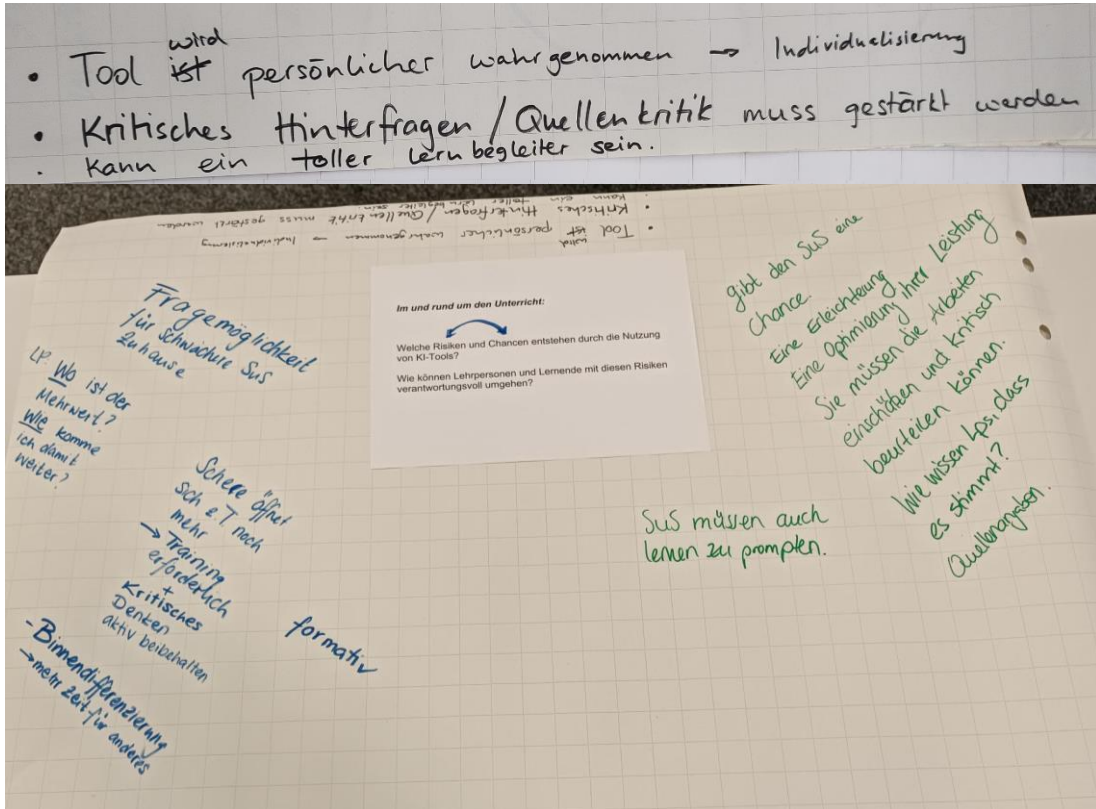 • Tool ist wird persönlicher wahrgenommen → Individualisierung
• Kritisches Hinterfragen / Quellenkritik muss gestärkt werden
• Kann ein toller Lernbegleiter sein.
• Kann ein toller Lernbegleiter sein.
• Kritisches Hinterfragen / Quellenkritik muss gestärkt werden
• Tool ist wird persönlicher wahrgenommen → Individualisierung
Fragemöglichkeit
für schwächere SuS
Zuhause
LP: Wo ist der
Mehrwert?
Wie komme
ich damit
weiter?
Schere öffnet
sich z.T noch
mehr
→ Training
erforderlich
+
Kritisches
Denken
aktiv beibehalten
- Binnendifferenzierung
→ mehr Zeit für anderes
formativ
Im und rund um den Unterricht:
Welche Risiken und Chancen entstehen durch die Nutzung
von KI-Tools?
Wie können Lehrpersonen und Lernende mit diesen Risiken
verantwortungsvoll umgehen?
gibt den SuS eine
Chance.
Eine Erleichterung
Eine Optmierung ihrer Leistung
Sie müssen die Arbeiten
einschätzen und kritisch
beurteilen können.
Wie wissen Lps, dass
es stimmt?
Quellenangaben.
SuS müssen auch
lernen zu prompten.